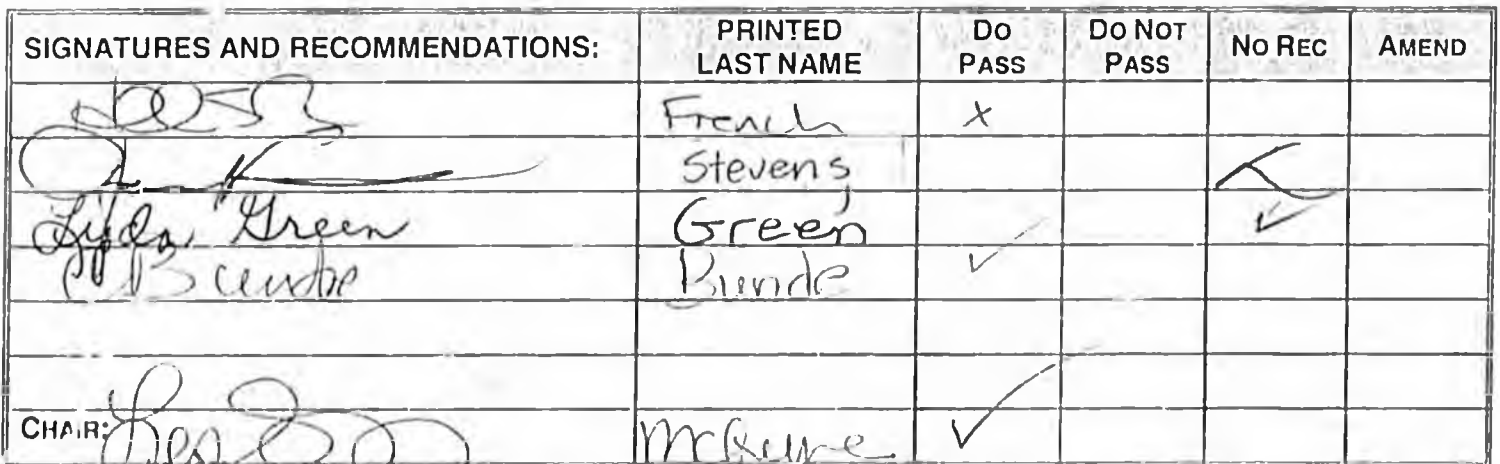 SIGNATURES AND RECOMMENDATIONS: PRINTED LAST NAME DO PASS DO NOT PASS NO REC AMEND
French X
Stevens
Lyda Green Green ✓
Bunde Bunde ✓
CHAIR: McGuire ✓